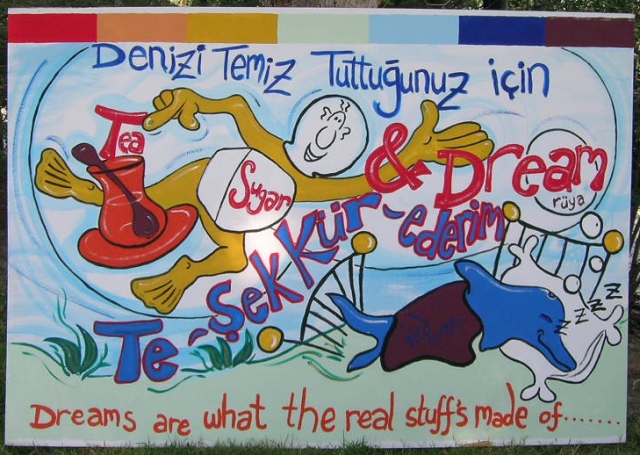 Denizi Temiz Tuttuğunuz için
Tea
Sugar
& Dream
rüya
Te-şekkür-ederim
z z z z
Dreams are what the real stuff's made of.......